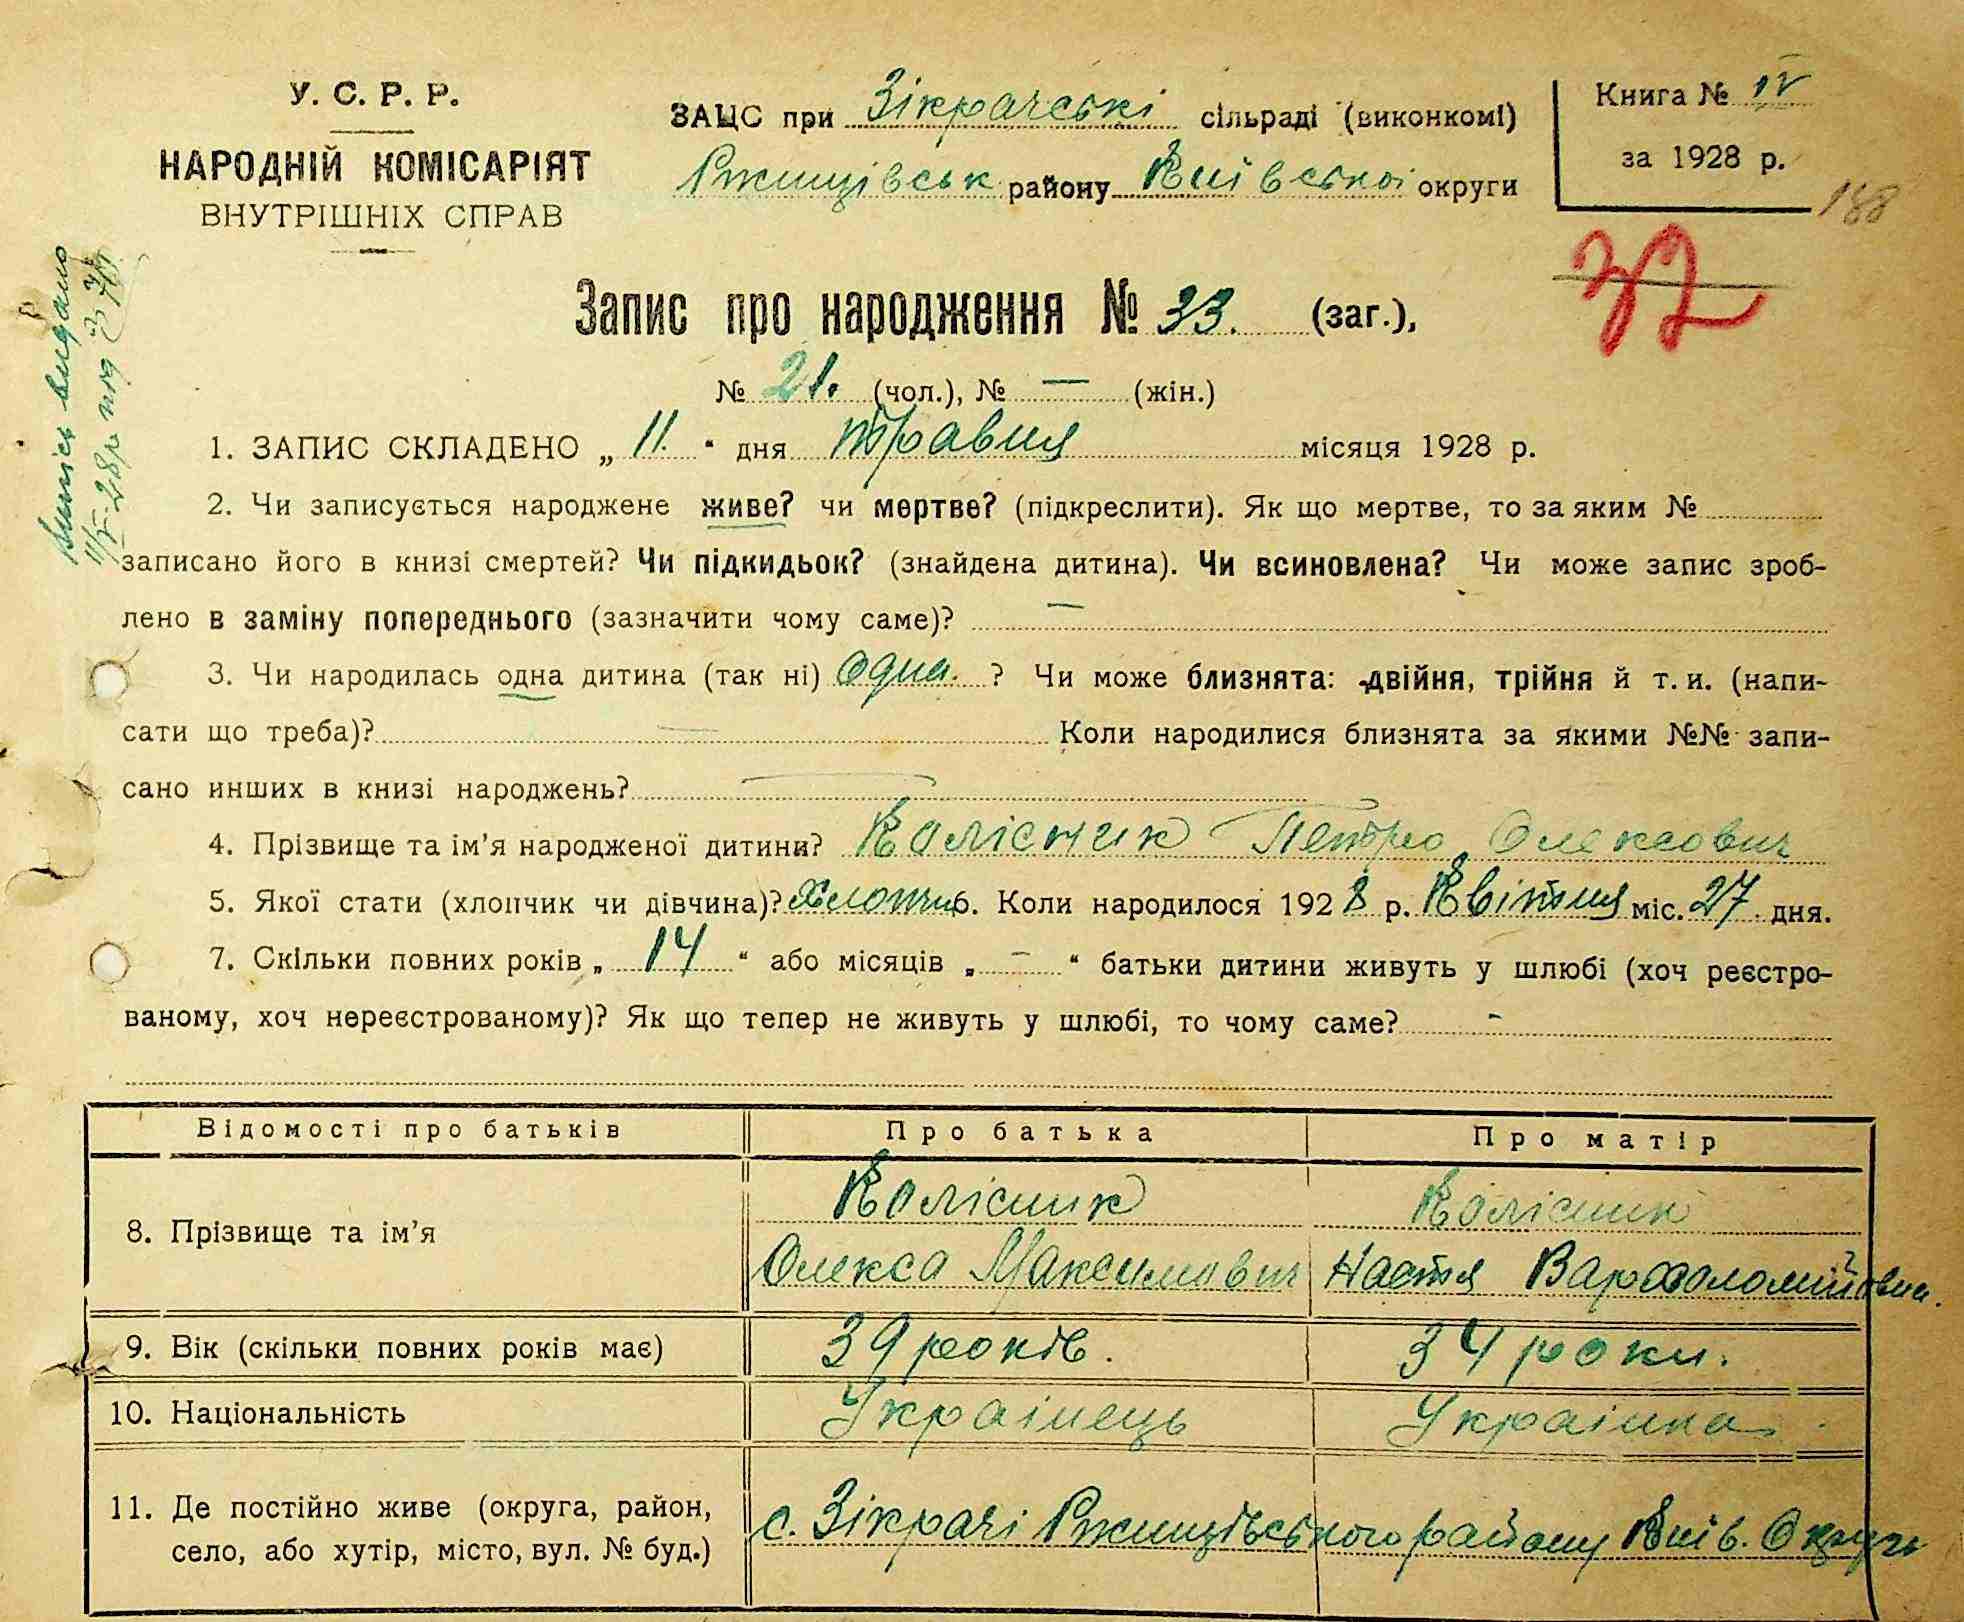 У. С. Р. Р.
НАРОДНІЙ КОМІСАРІЯТ
ВНУТРІШНІХ СПРАВ
ЗАЦС при Зікрачські сільраді (виконкомі)
Ржищівськ району Київської округи
Книга № IV
за 1928 р.
188
32
Випись видано
Запис про народження № 33. (заг.),
№ 21. (чол.), № — (жін.)
1. ЗАПИС СКЛАДЕНО „ 11. “ дня травня місяця 1928 р.
2. Чи записується народжене живе? чи мертве? (підкреслити). Як що мертве, то за яким №
записано його в книзі смертей? Чи підкидьок? (знайдена дитина). Чи всиновлена? Чи може запис зроб-
лено в заміну попереднього (зазначити чому саме)? —
3. Чи народилась одна дитина (так ні) Одна. ? Чи може близнята: двійня, трійня й т. и. (напи-
сати що треба)? — Коли народилися близнята за якими №№ запи-
сано инших в книзі народжень? —
4. Прізвище та ім'я народженої дитини? Колісник Петро Олексович
5. Якої стати (хлопчик чи дівчина)? Хлопчик 6. Коли народилося 1928 р. Квітня міс. 27. дня.
7. Скільки повних років „ 14 “ або місяців „ - “ батьки дитини живуть у шлюбі (хоч реєстро-
ваному, хоч нереєстрованому)? Як що тепер не живуть у шлюбі, то чому саме? -
Відомості про батьків Про батька Про матір
8. Прізвище та ім'я
Колісник Колісник
Олекса Максимович Настя Варфоломійовна.
9. Вік (скільки повних років має) 39 років. 34 роки.
10. Національність Українець Українка
11. Де постійно живе (округа, район,
село, або хутір, місто, вул. № буд.)
с. Зікрачі Ржищівського району Київ. Округи